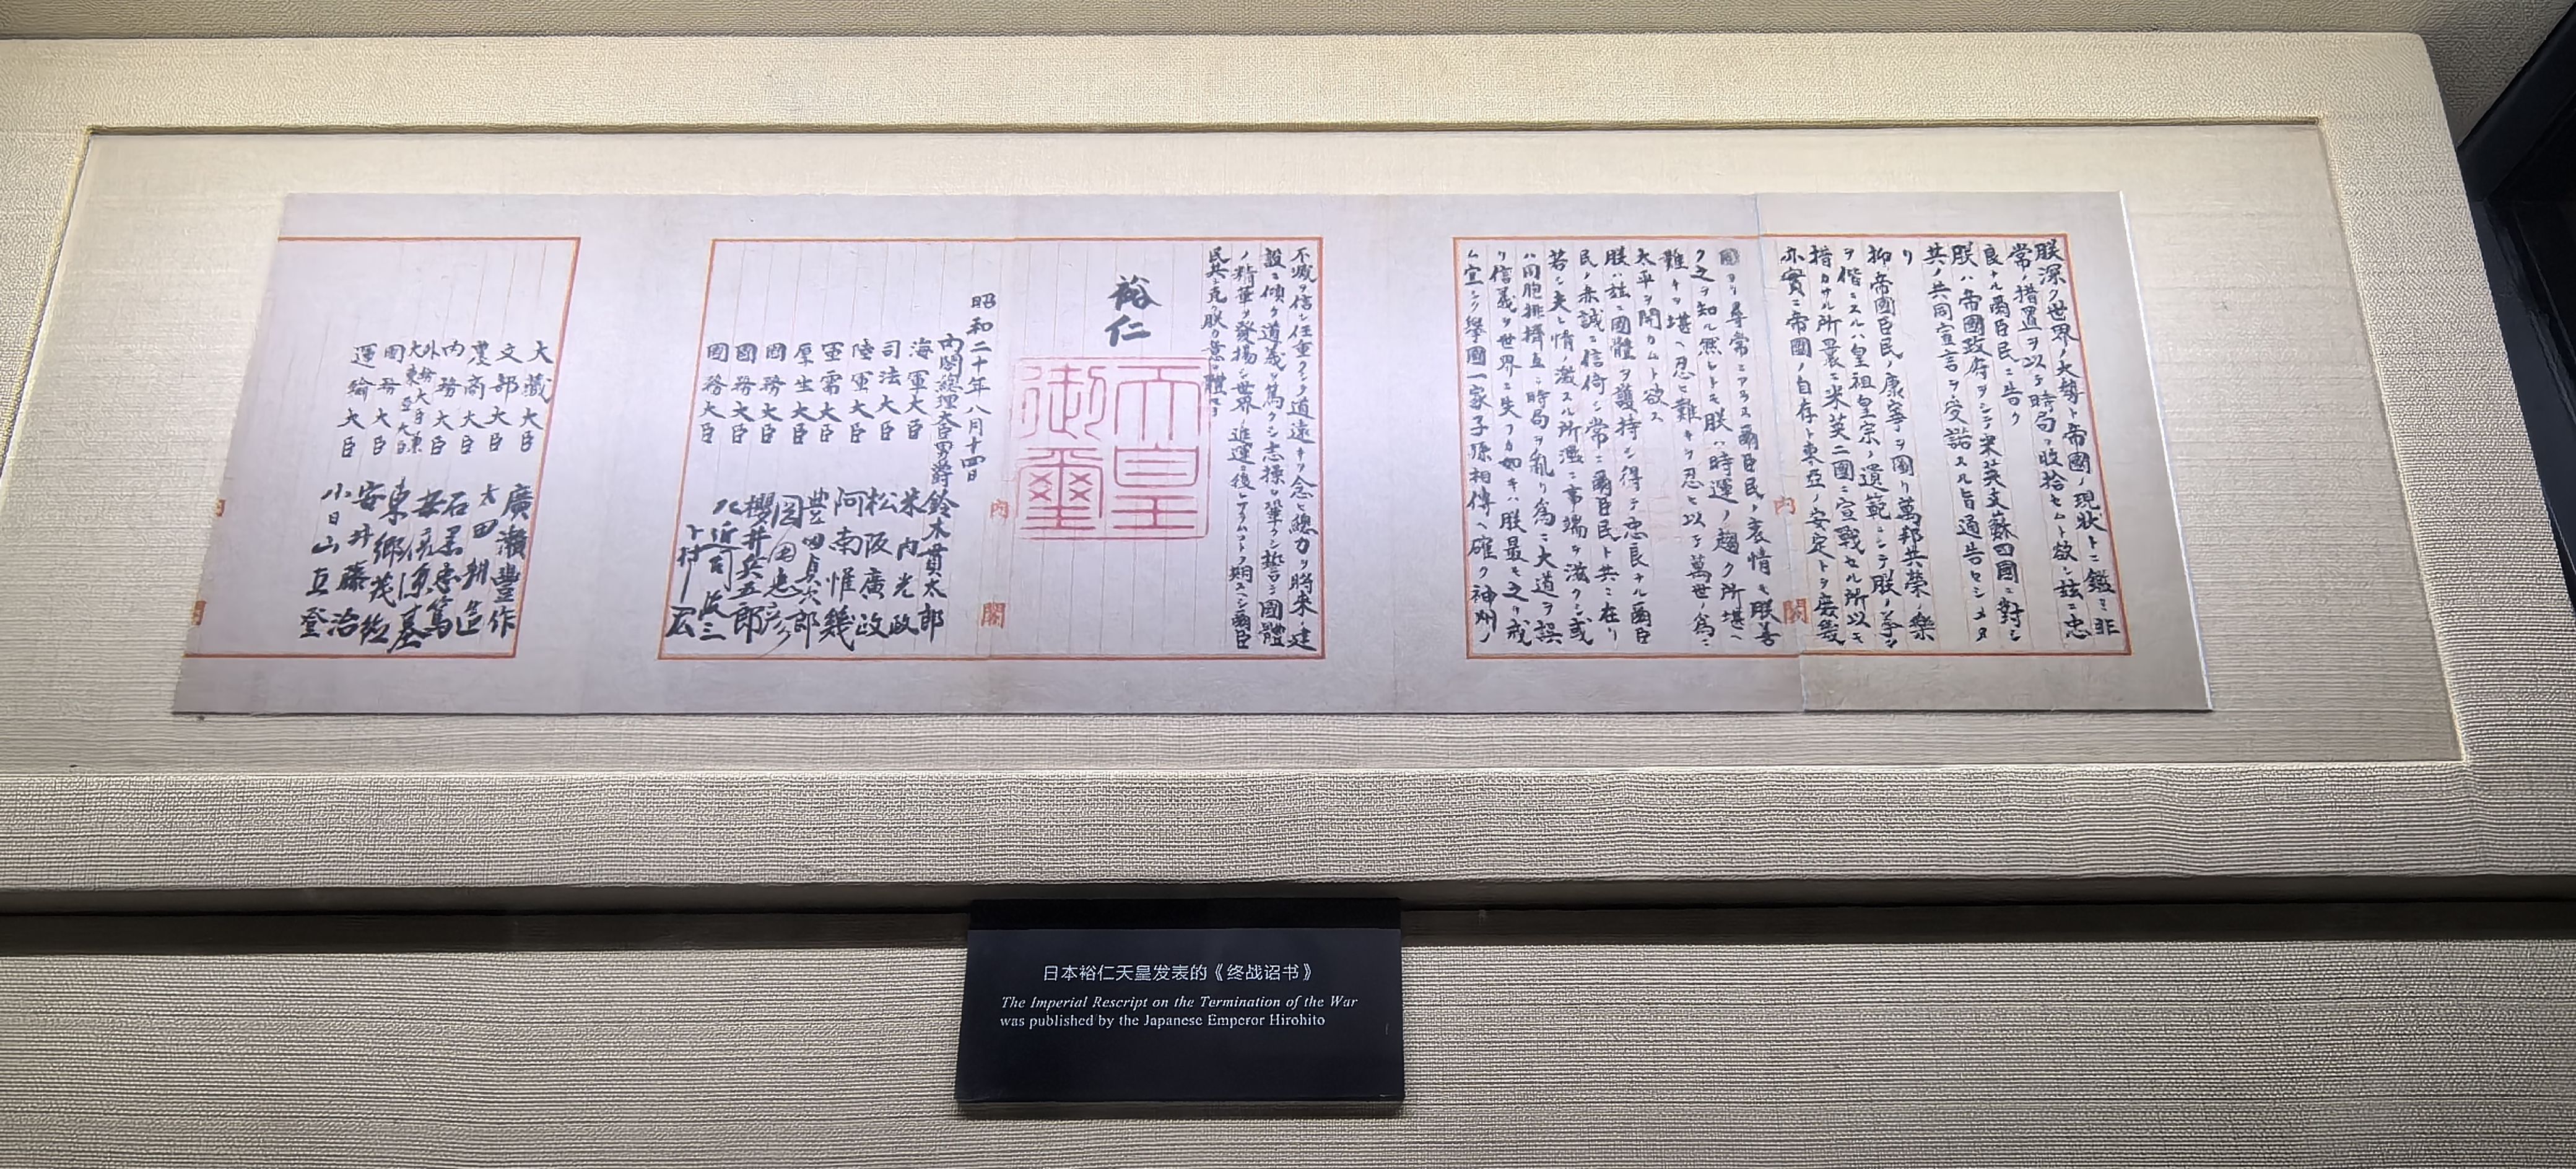 朕深ク世界ノ大勢ト帝國ノ現状トニ鑑ミ非
常ノ措置ヲ以テ時局ヲ收拾セムト欲シ茲ニ忠
良ナル爾臣民ニ告ク
朕ハ帝國政府ヲシテ米英支蘇四國ニ對シ
其ノ共同宣言ヲ受諾スル旨通告セシメタ
リ
抑〻帝國臣民ノ康寧ヲ圖リ萬邦共榮ノ樂
ヲ偕ニスルハ皇祖皇宗ノ遺範ニシテ朕ノ拳〻
措カサル所曩ニ米英二國ニ宣戰セル所以モ
亦實ニ帝國ノ自存ト東亞ノ安定トヲ庶幾
内閣
固ヨリ尋常ニアラス爾臣民ノ衷情モ朕善
ク之ヲ知ル然レトモ朕ハ時運ノ趨ク所堪ヘ
難キヲ堪ヘ忍ヒ難キヲ忍ヒ以テ萬世ノ爲ニ
太平ヲ開カムト欲ス
朕ハ茲ニ國體ヲ護持シ得テ忠良ナル爾臣
民ノ赤誠ニ信倚シ常ニ爾臣民ト共ニ在リ
若シ夫レ情ノ激スル所濫ニ事端ヲ滋クシ或
ハ同胞排擠互ニ時局ヲ亂リ爲ニ大道ヲ誤
リ信義ヲ世界ニ失フカ如キハ朕最モ之ヲ戒
ム宜シク擧國一家子孫相傳ヘ確ク神州ノ
不滅ヲ信シ任重クシテ道遠キヲ念ヒ總力ヲ將來ノ建
設ニ傾ケ道義ヲ篤クシ志操ヲ鞏クシ誓テ國體
ノ精華ヲ發揚シ世界ノ進運ニ後レサラムコトヲ期スヘシ爾臣
民其レ克ク朕カ意ヲ體セヨ
裕仁
天皇
御璽
内閣
昭和二十年八月十四日
内閣總理大臣男爵 鈴木貫太郎
海軍大臣 米内光政
司法大臣 松阪廣政
陸軍大臣 阿南惟幾
軍需大臣 豊田貞次郎
厚生大臣 岡田忠彦
國務大臣 櫻井兵五郎
國務大臣 左近司政三
國務大臣 下村宏
大藏大臣 廣瀬豐作
文部大臣 太田耕造
農商大臣 石黒忠篤
内務大臣 安倍源基
外務大臣兼大東亞大臣 東郷茂徳
國務大臣 安井藤治
運輸大臣 小日山直登
日本裕仁天皇发表的《终战诏书》
The Imperial Rescript on the Termination of the War
was published by the Japanese Emperor Hirohito